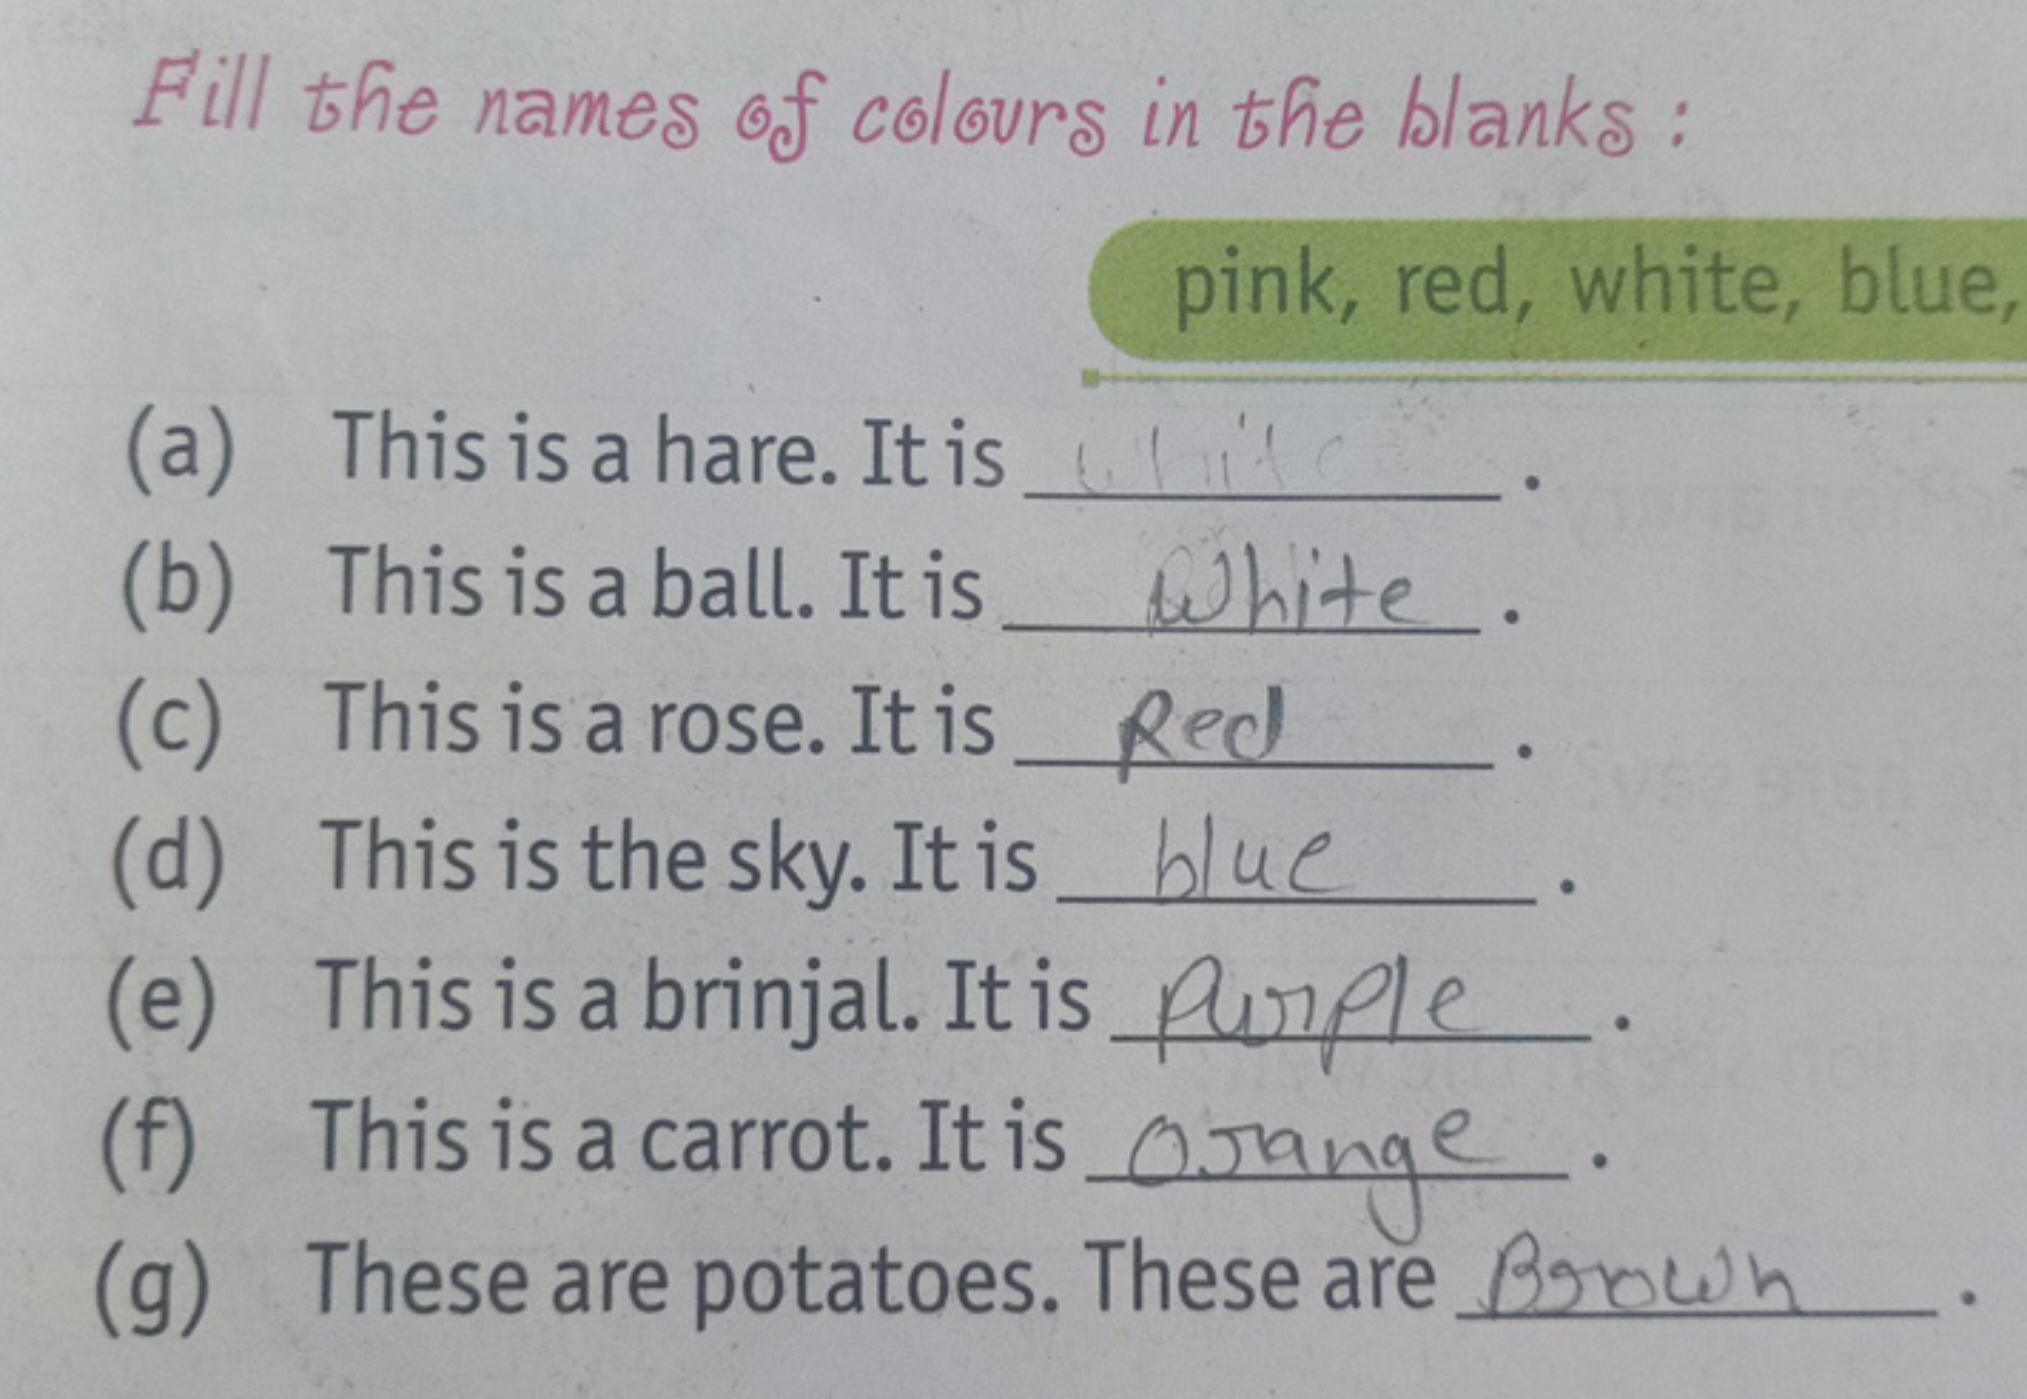 Fill the names of colours in the blanks :
pink, red, white, blue,
(a) This is a hare. It is white .
(b) This is a ball. It is White .
(c) This is a rose. It is Red .
(d) This is the sky. It is blue .
(e) This is a brinjal. It is Purple .
(f) This is a carrot. It is Orange .
(g) These are potatoes. These are Brown .